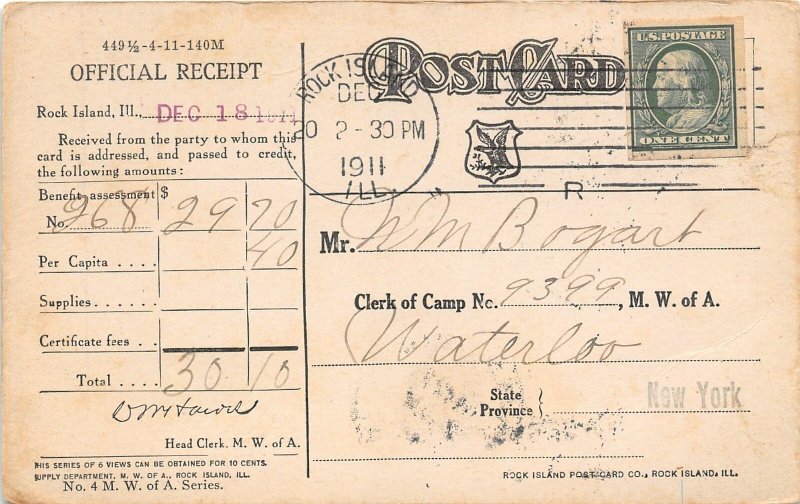 449½-4-11-140M
OFFICIAL RECEIPT
Rock Island, Ill., DEC 18 1911
Received from the party to whom this
card is addressed, and passed to credit,
the following amounts:
Benefit assessment $
No. 268 29 70
Per Capita .... 40
Supplies......
Certificate fees ..
Total .... 30 10
Head Clerk, M. W. of A.
THIS SERIES OF 6 VIEWS CAN BE OBTAINED FOR 10 CENTS.
SUPPLY DEPARTMENT, M. W. of A., ROCK ISLAND, ILL.
No. 4 M. W. of A. Series.
POST CARD
ROCK ISLAND
DEC
20 2-30 PM
1911
ILL.
R
U.S. POSTAGE
ONE CENT
Mr. Wm Bogart
Clerk of Camp No. 9399, M. W. of A.
Waterloo
State
Province
New York
ROCK ISLAND POST CARD CO., ROCK ISLAND, ILL.